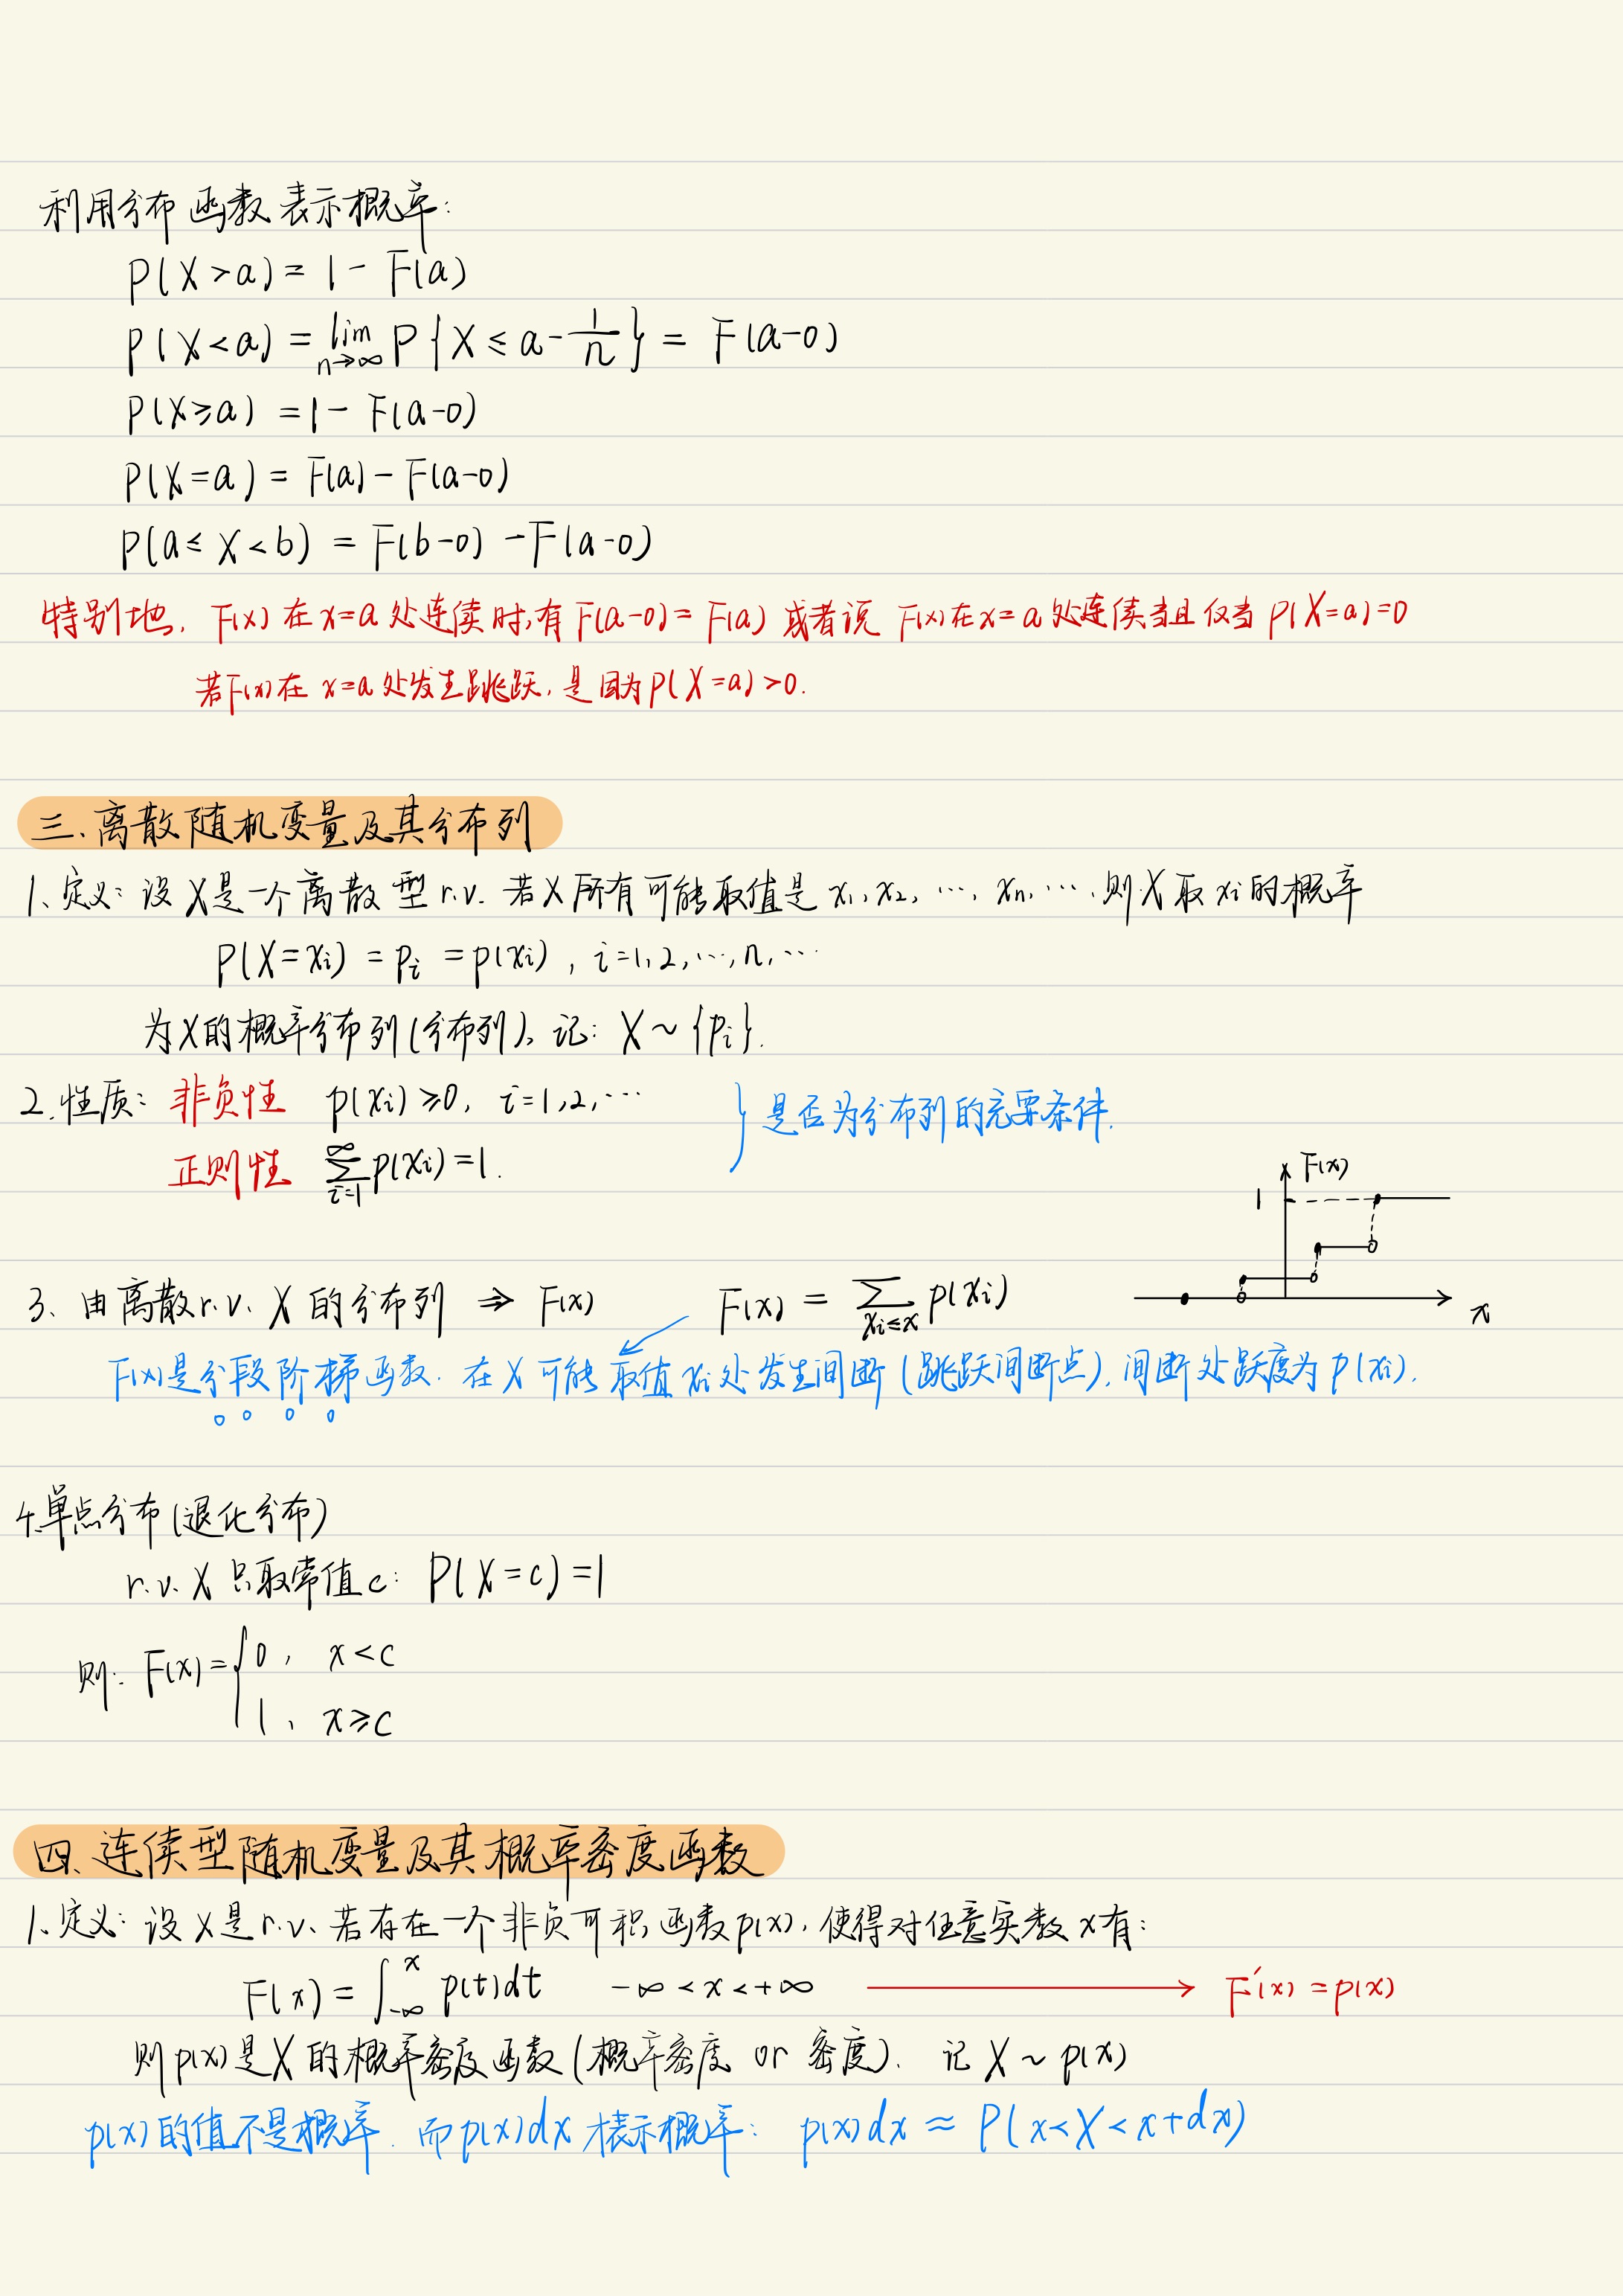 利用分布函数表示概率:
P(X>a) = 1 - F(a)
P(X<a) = lim_{n→∞} P{X ≤ a - 1/n} = F(a-0)
P(X≥a) = 1 - F(a-0)
P(X=a) = F(a) - F(a-0)
P(a≤X<b) = F(b-0) - F(a-0)
特别地, F(x)在x=a处连续时,有F(a-0)=F(a) 或者说 F(x)在x=a处连续当且仅当P(X=a)=0
若F(x)在x=a处发生跳跃,是因为P(X=a)>0.
三、离散随机变量及其分布列
1、定义: 设X是一个离散型r.v. 若X所有可能取值是 x₁, x₂, …, xₙ, …, 则X取xᵢ的概率
P(X=xᵢ) = pᵢ = p(xᵢ), i=1,2,…,n,…
为X的概率分布列(分布列), 记: X~{pᵢ}.
2.性质: 非负性 p(xᵢ)≥0, i=1,2,…
} 是否为分布列的充要条件.
正则性 ∑_{i=1}^{∞} p(xᵢ)=1.
F(x)
1
3、由离散r.v. X的分布列 ⇒ F(x) F(x) = ∑_{xᵢ≤x} p(xᵢ)
x
F(x)是分段阶梯函数. 在X可能取值xᵢ处发生间断(跳跃间断点), 间断处跃度为p(xᵢ).
4.单点分布(退化分布)
r.v. X 只取常值c: P(X=c)=1
则: F(x) = { 0, x<c
1, x≥c
四、连续型随机变量及其概率密度函数
1、定义: 设X是r.v. 若存在一个非负可积函数p(x), 使得对任意实数x有:
F(x) = ∫_{-∞}^{x} p(t)dt -∞<x<+∞ → F'(x)=p(x)
则p(x)是X的概率密度函数(概率密度 or 密度). 记X~p(x)
p(x)的值不是概率. 而p(x)dx才表示概率: p(x)dx ≈ P(x<X<x+dx)